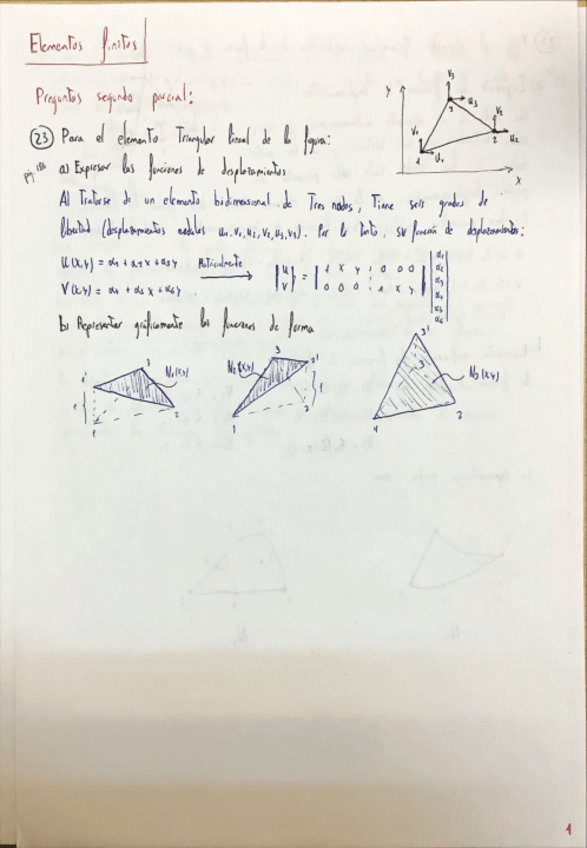 Elementos finitos
Preguntas segundo parcial:
23 Para el elemento Triangular lineal de la figura:
pág.
a) Expresar las funciones de desplazamientos
Al Tratarse de un elemento bidimensional de Tres nodos, Tiene seis grados de
libertad (desplazamientos nodales u₁, v₁, u₂, v₂, u₃, v₃). Por lo tanto, su función de desplazamientos:
u(x,y) = α₁ + α₂ x + α₃ y
v(x,y) = α₄ + α₅ x + α₆ y
Matricialmente
|u| = |1 x y 0 0 0| |α₁
|v| |0 0 0 1 x y| α₂
α₃
α₄
α₅
α₆|
b) Representar gráficamente las funciones de forma
y
x
v₃
u₃
3
v₂
u₂
2
v₁
u₁
1
1'
3
N₁(x,y)
1
2
1
3
2'
N₂(x,y)
1
2
1
3'
3
N₃(x,y)
1
2
1